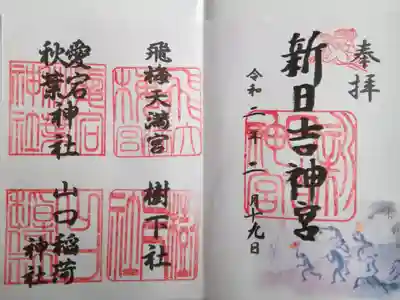 奉拝
新日吉神宮
令和二年二月十九日
飛梅天満宮
樹下社
愛宕神社
秋葉神社
山口稲荷神社